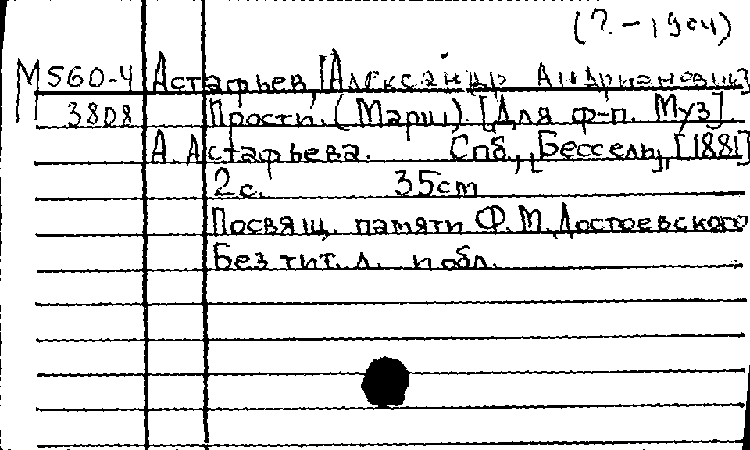 (?-1904)
М560-4 Астафьев, [Александр Андрианович]
3808 Прости. (Марш). [Для ф-п. Муз]
А. Астафьева. Спб., [Бессель], [1881]
2с. 35cm
Посвящ. памяти Ф.М.Достоевского
Без тит. л. и обл.